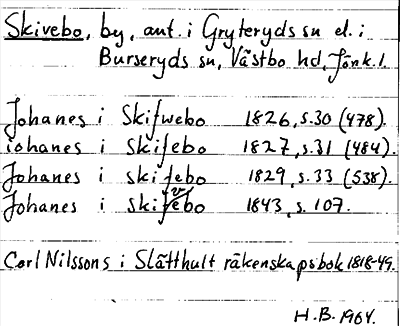 Skivebo, by, ant. i Gryteryds sn el. i
Burseryds sn, Västbo hd, Jönk. l.
Johanes i Skifwebo 1826, s. 30 (478).
iohanes i Skifebo 1827, s. 31 (484).
Johanes i skifebo 1829, s. 33 (538).
Johanes i skifvebo 1843, s. 107.
Carl Nilssons i Slätthult räkenskapsbok 1818-49.
H.B. 1964.